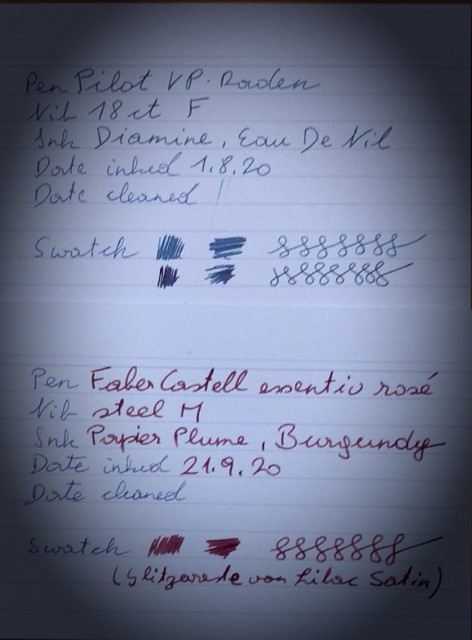 Pen Pilot VP. Raden
Nib 18 ct F
Ink Diamine, Eau De Nil
Date inked 1.8.20
Date cleaned
Swatch
Pen Faber Castell essentio rosé
Nib steel M
Ink Papier Plume, Burgundy
Date inked 21.9.20
Date cleaned
Swatch
(Glitzereste von Lilac Satin)